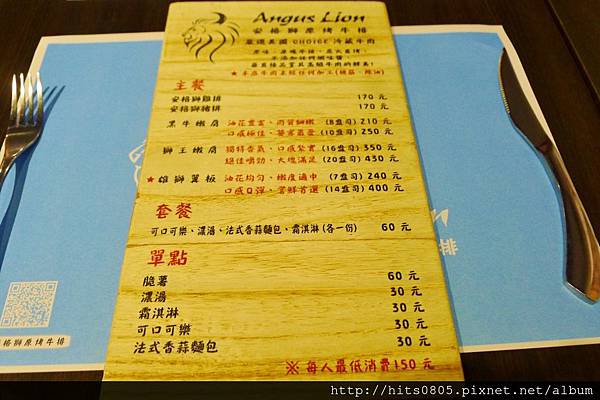 Angus Lion
安格獅原烤牛排
嚴選美國 CHOICE 冷藏牛肉
原味、原塊牛排、炭火直烤，
不添加任何調味醬
★ 本店牛肉未經任何加工(機筋、陳油)
主餐
安格獅雞排 170 元
安格獅豬排 170 元
黑牛嫩肩 油花豐富、肉質細嫩 (8盎司) 210 元
口感極佳、 (10盎司) 250 元
獅王嫩肩 獨特香氣、口感紮實 (16盎司) 350 元
絕佳嚼勁、大塊滿足 (20盎司) 430 元
★ 雄獅翼板 油花均勻、嫩度適中 (7盎司) 240 元
口感Q彈、嘗鮮首選 (14盎司) 400 元
套餐
可口可樂、濃湯、法式香蒜麵包、霜淇淋 (各一份) 60 元
單點
脆薯 60 元
濃湯 30 元
霜淇淋 30 元
可口可樂 30 元
法式香蒜麵包 30 元
※ 每人最低消費150 元
安格獅原烤牛排
排
http://hits0805.pixnet.net/album